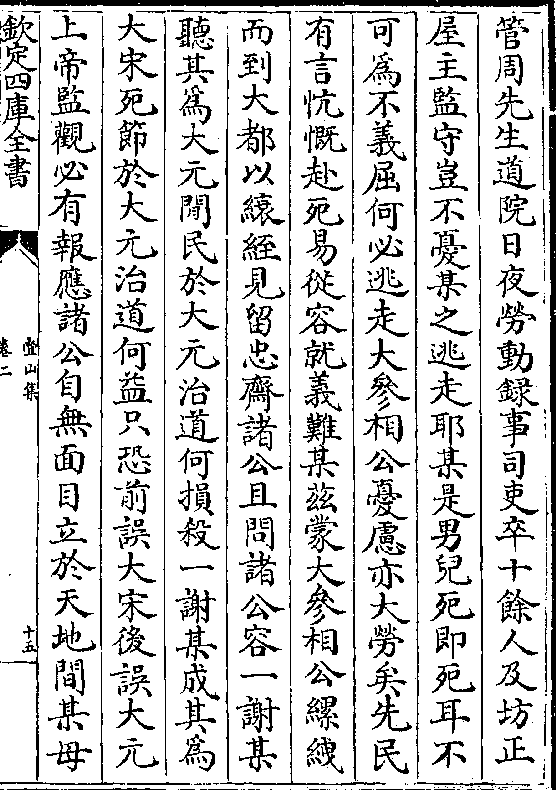 管周先生道院日夜勞動録事司吏卒十餘人及坊正
屋主監守豈不憂某之逃走耶某是男兒死即死耳不
可為不義屈何必逃走大參相公憂慮亦大勞矣先民
有言忼慨赴死易從容就義難某茲蒙大參相公縲絏
而到大都以縗絰見留忠齋諸公且問諸公容一謝某
聽其為大元閒民於大元治道何損殺一謝某成其為
大宋死節於大元治道何益只恐前誤大宋後誤大元
上帝監觀必有報應諸公自無面目立於天地間某母
欽定四庫全書
疊山集
卷二
十五